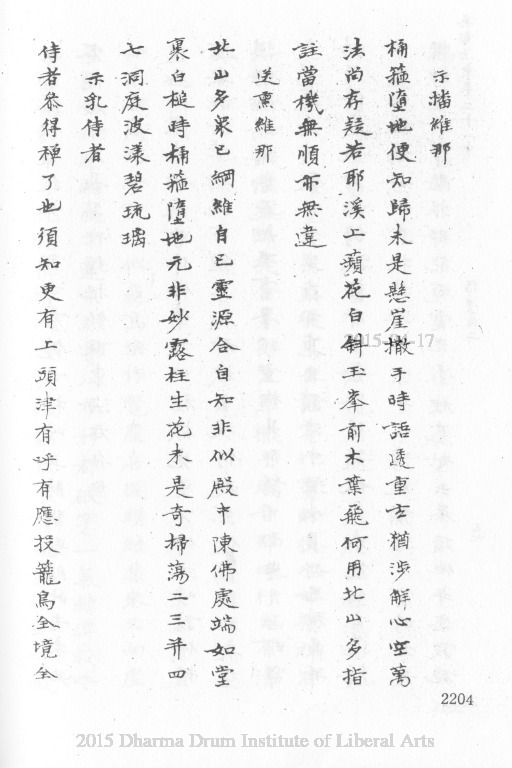 示楷維那
桶箍墮地便知歸未是懸崖撒手時語透重玄猶涉解心空萬
法尚存疑若耶溪上蘋花白斜玉峯前木葉飛何用北山多指
註當機無順亦無違
送熏維那
北山多衆已綱維自己靈源合自知非似殿中陳佛處端如堂
裏白槌時桶箍墮地元非妙露柱生花未是奇掃蕩二三并四
七洞庭波漾碧琉璃
示乳侍者
侍者叅得禪了也須知更有上頭津有呼有應投籠鳥全境全
2204
2015-17
2015 Dharma Drum Institute of Liberal Arts